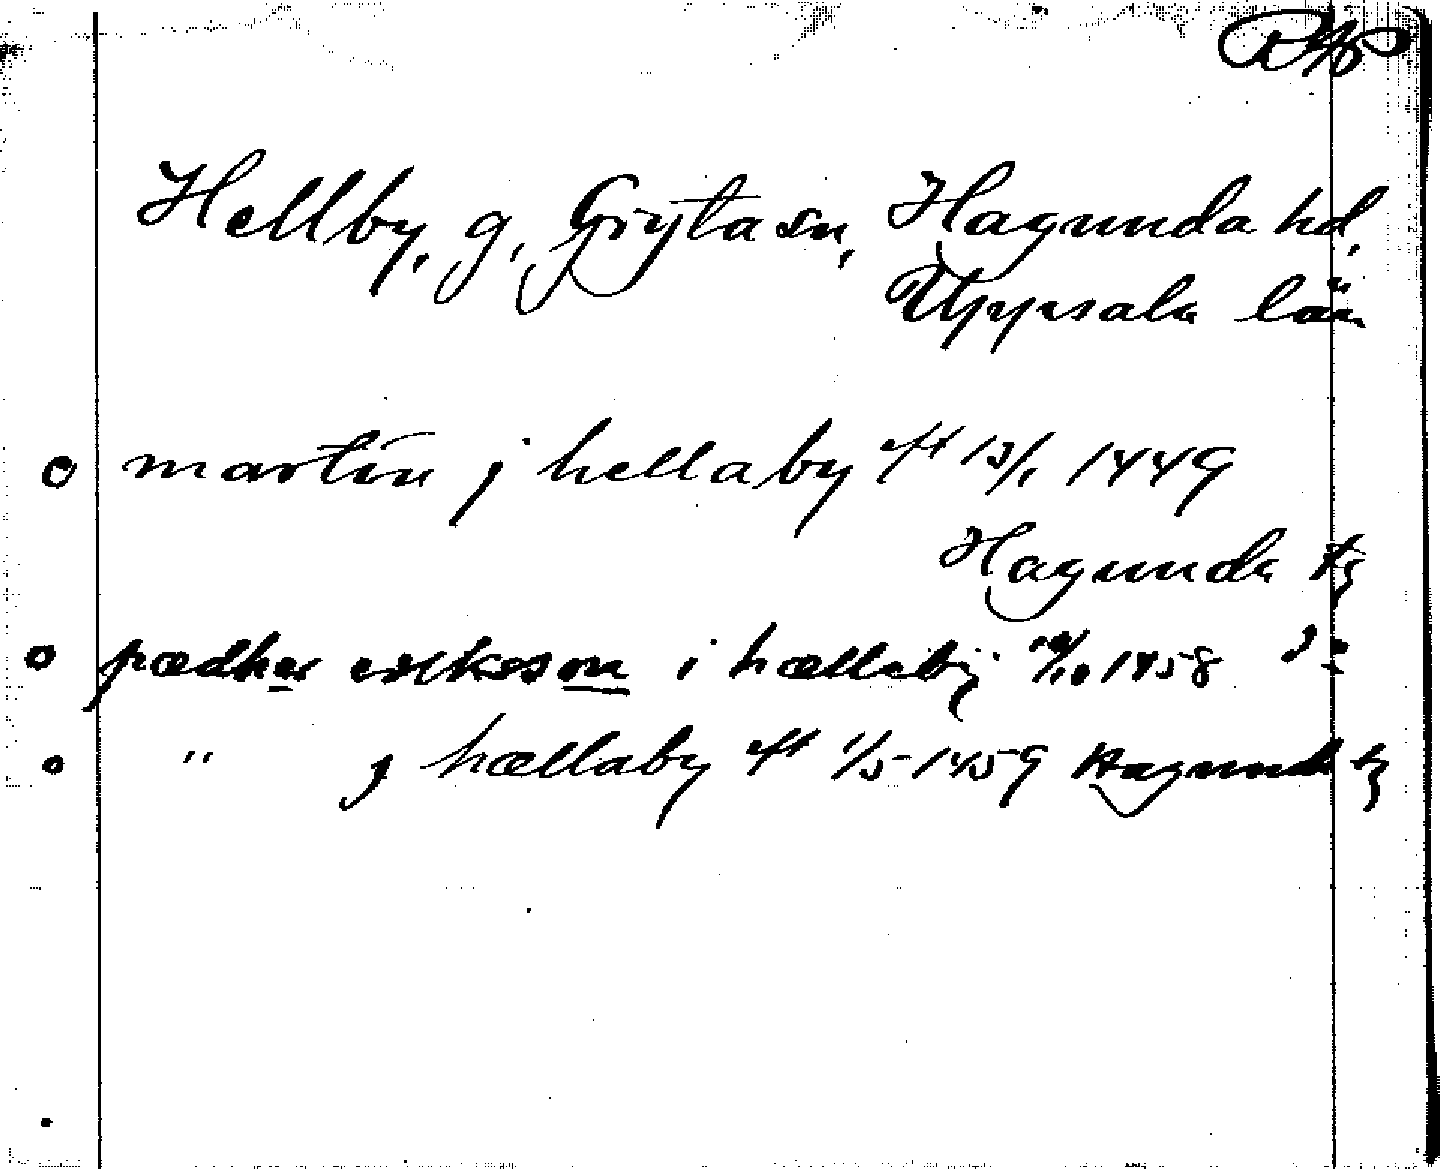 Hellby, g, Gryta sn, Hagunda hd,
Uppsala län
o martin j hellaby aft 13/1 1449
Hagunda tg
o pædher erikson i hællabÿ 1458 do
o " j hællaby aft 1/5 1459 Hagunda tg